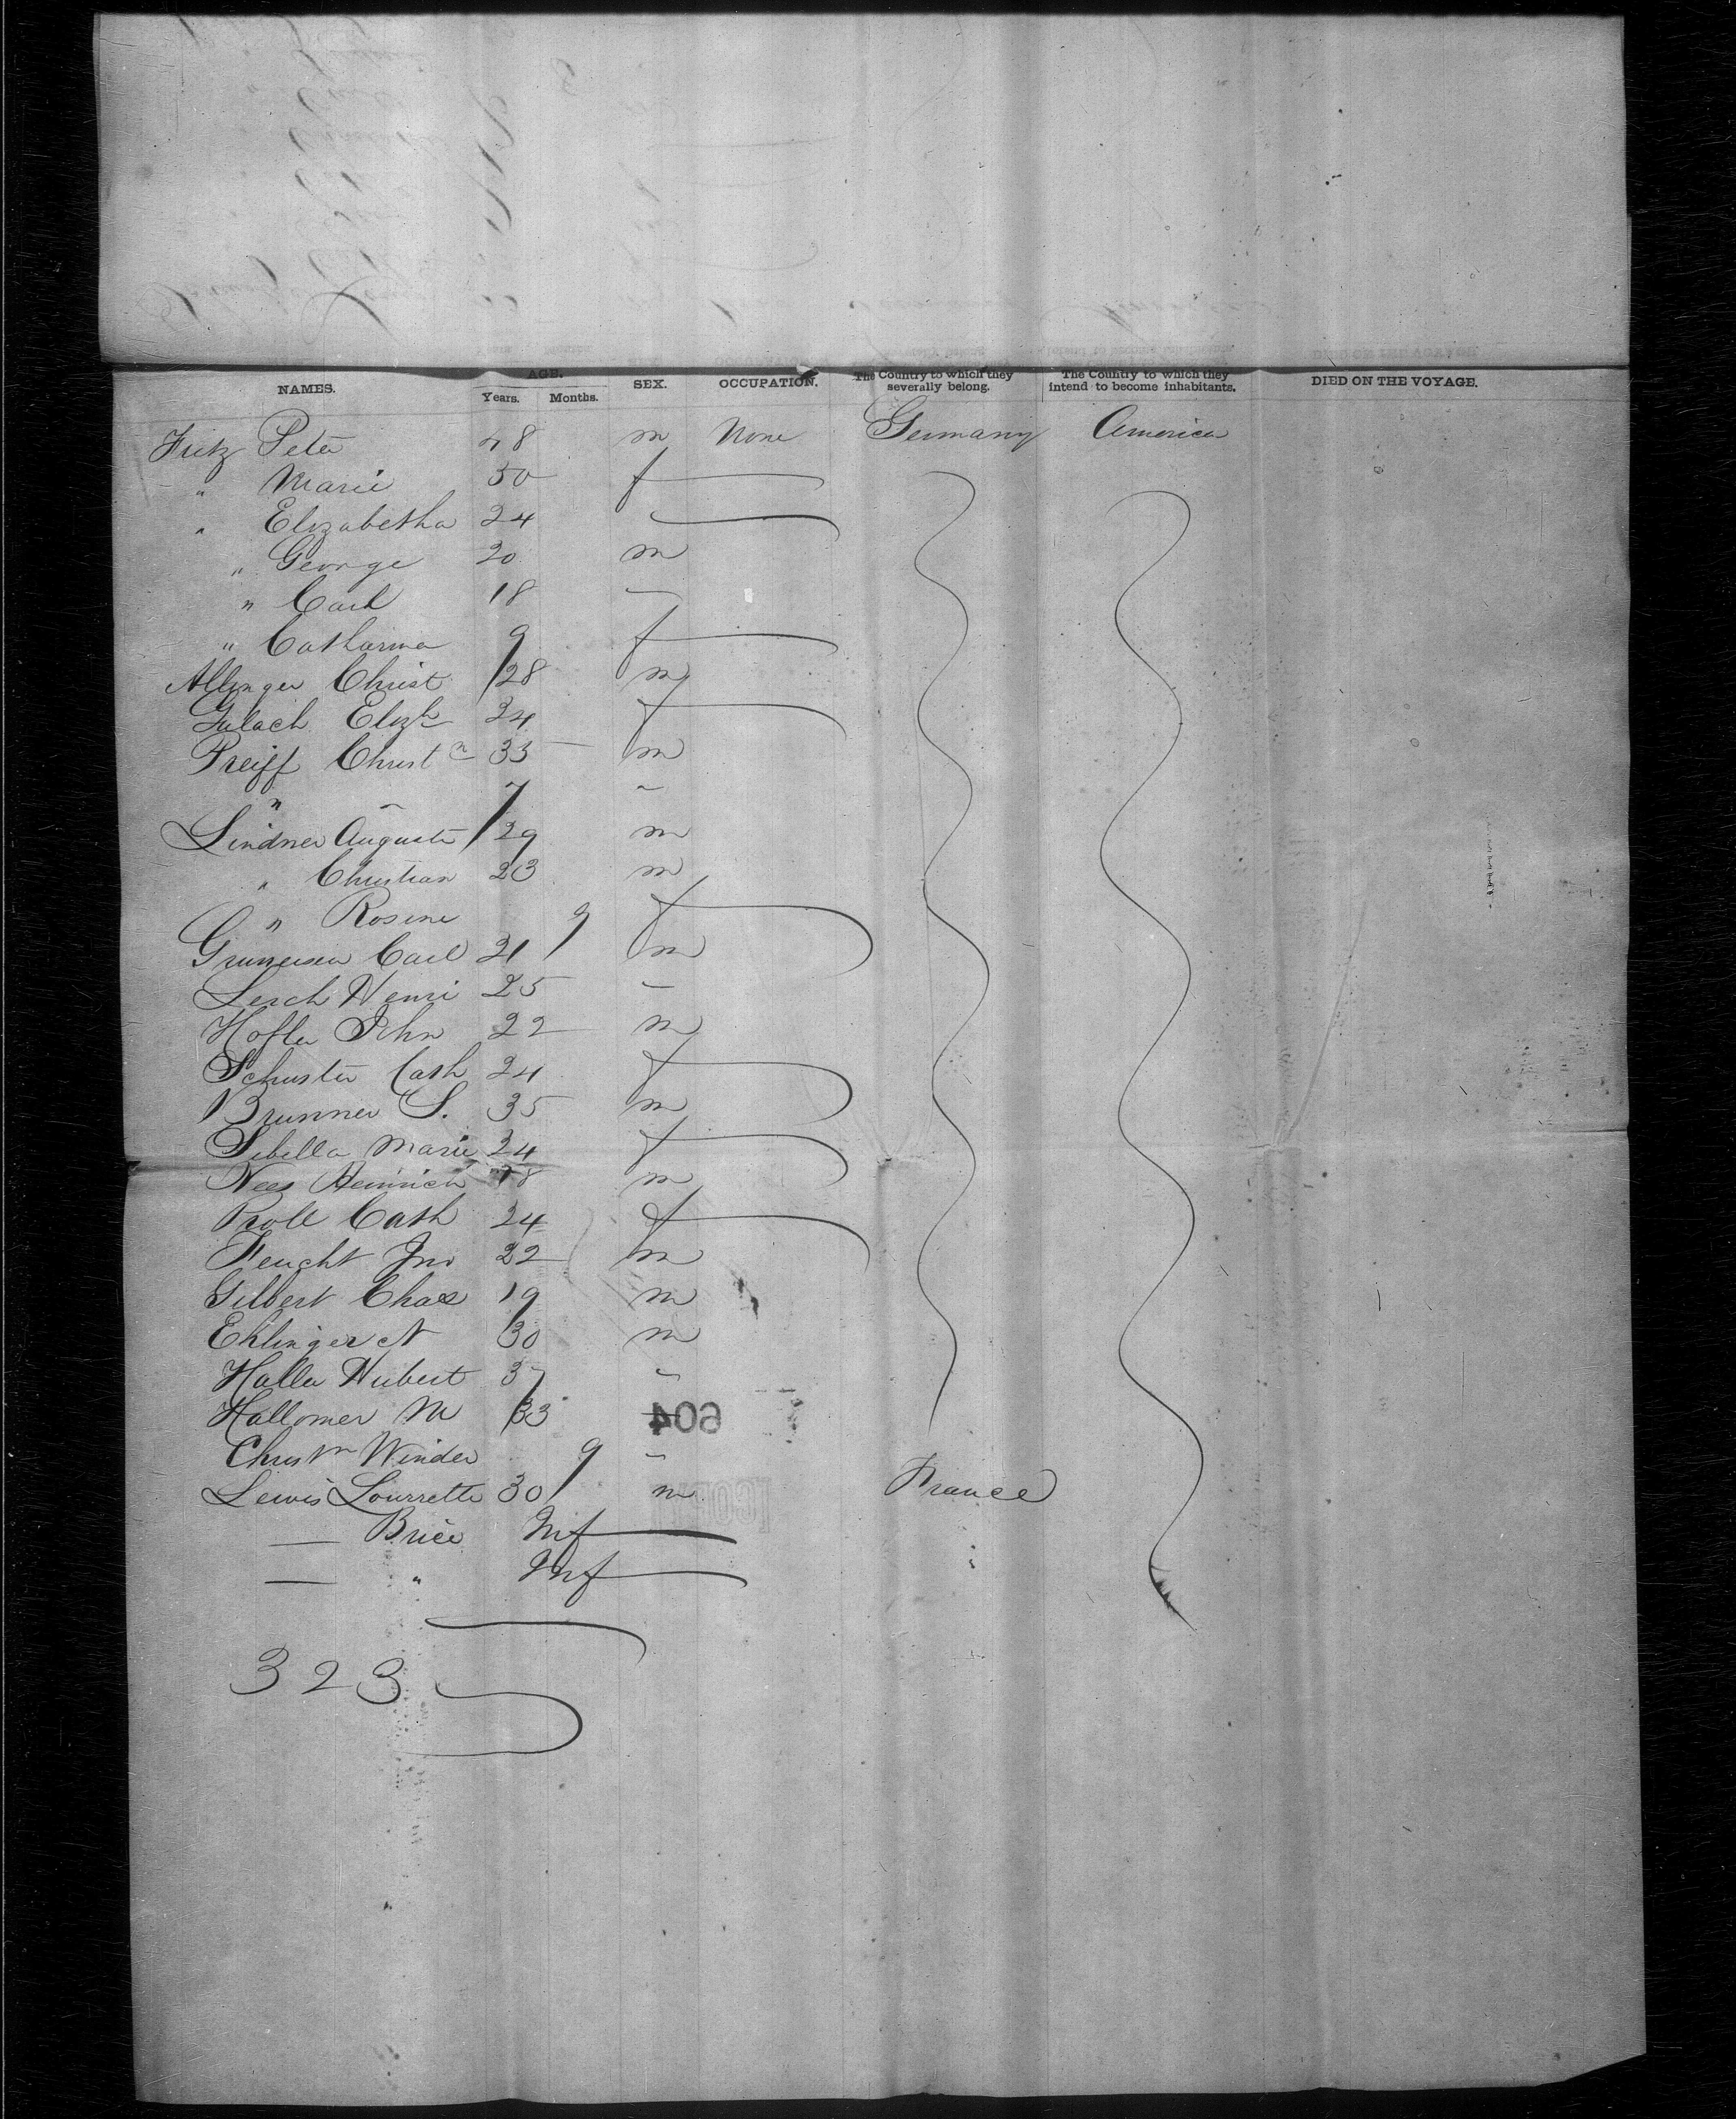 NAMES. AGE. Years. Months. SEX. OCCUPATION. The Country to which they severally belong. The Country to which they intend to become inhabitants. DIED ON THE VOYAGE.
Fritz Peter 48 m None Germany America
" Marie 50 f
" Elizabetha 24
" George 20 m
" Carl 18 -
" Catharina 9 f
Allinger Christ 28 m
Gulach Elizh 24 f
Preiff Christn 33 m
" 7 -
Lindner Auguste 29 m
" Christian 23 m
" Rosine 9 f
Carl 21 m
Lerch Henri 25 -
Hofler John 22 m
Schuster Cath 24 f
Brunner S. 35 m
Sibella Marie 24 f
Nees Heinrich 18 m
Proll Cath 24 f
Feucht Jno 22 m
Gilbert Chas 19 m
Ehlinger N 30 m
Haller Hubert 37 -
Hallomer M 33
604
Christn Winder 9 -
Lewis Lourrette 30 m France
— Brice Inf
— " Inf
323